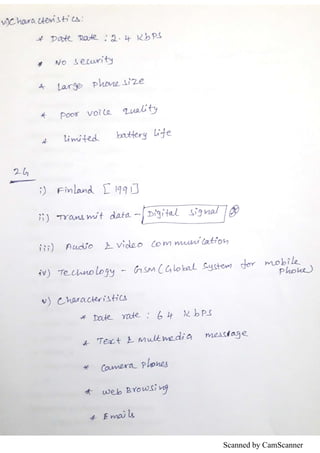 v) Characteristics:
* Date Rate : 2.4 kbps
* No security
* Large phone size
* poor voice quality
* limited battery life
2G
i) Finland [1991]
ii) Transmit data - Digital signal
iii) Audio & video communication
iv) Technology - GSM (Global System for mobile
Phone)
v) Characteristics
* Date rate : 64 kbps
* Text & Multmedia message
* Camera Phones
* web Browsing
* Emails
Scanned by CamScanner